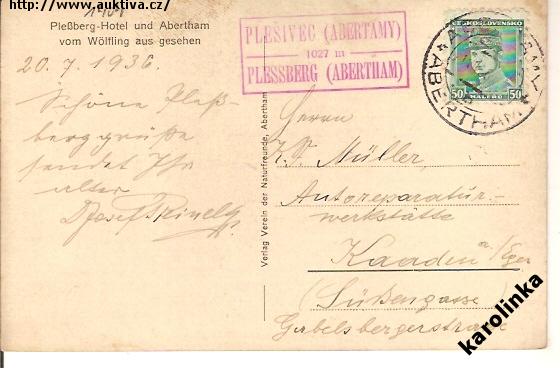 http://www.auktiva.cz/
Pleßberg-Hotel und Abertham
vom Wölfling aus gesehen
20. 7. 1936.
Schöne Pleß
berggrüße
sendet Ihr
alter
Josef
PLEŠIVEC (ABERTAMY)
1027 m
PLESSBERG (ABERTHAM)
ČESKOSLOVENSKO
50 HALÉŘŮ 50
ABERTHAM
Verlag Verein der Naturfreunde, Abertham
Herrn
Müller,
Autoreparatur-
werkstätte
Kaaden a/Eger
(Süßengasse)
Gabelsbergerstrasse
karolinka